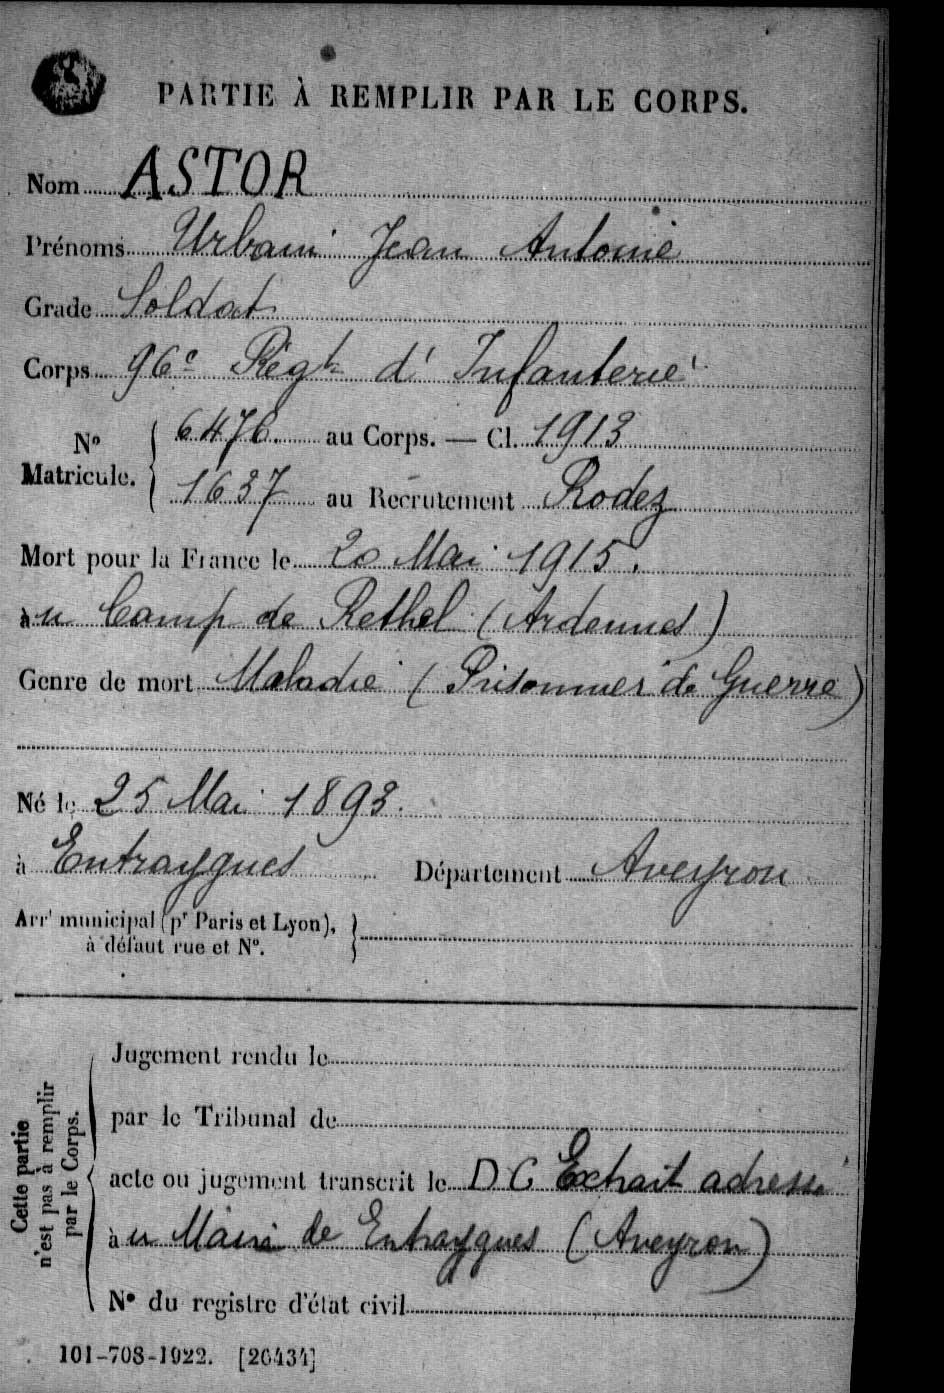 PARTIE À REMPLIR PAR LE CORPS.
Nom ASTOR
Prénoms Urbain Jean Antoine
Grade Soldat
Corps 96e Régt d'Infanterie
No Matricule. { 6476. au Corps. — Cl. 1913
1637 au Recrutement Rodez
Mort pour la France le 20 Mai 1915.
au Camp de Rethel (Ardennes)
Genre de mort Maladie (Prisonnier de Guerre)
Né le 25 Mai 1893.
à Entraygues Département Aveyron
Arrt municipal (pr Paris et Lyon),
à défaut rue et No.
Cette partie
n'est pas à remplir
par le Corps.
Jugement rendu le
par le Tribunal de
acte ou jugement transcrit le D C Extrait adressé
au Maire de Entraygues (Aveyron)
No du registre d'état civil
101-708-1922. [26434]